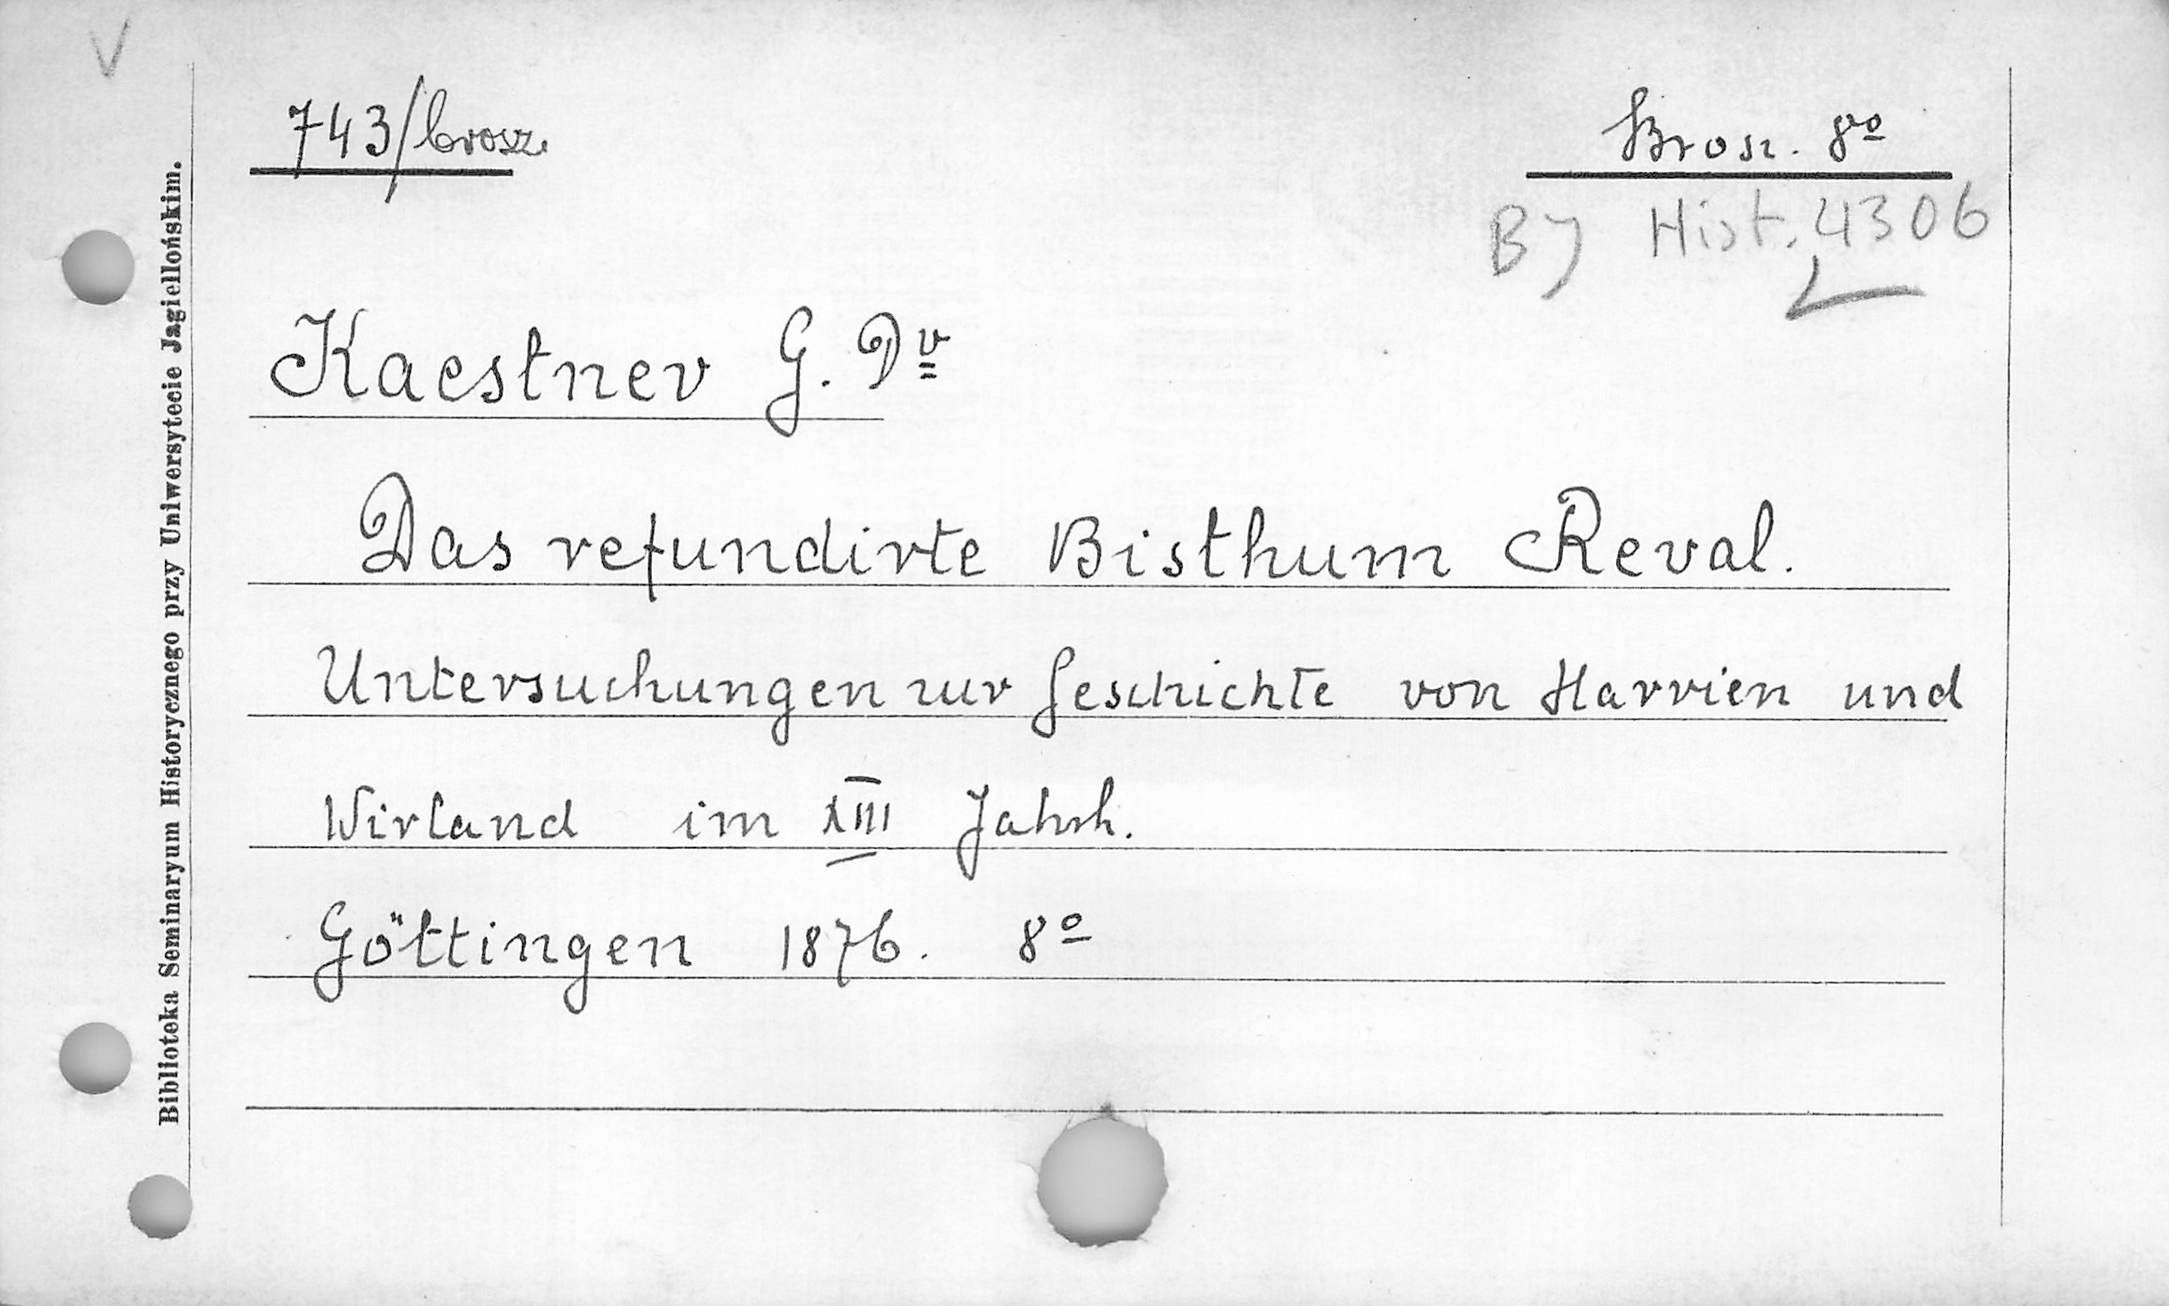 V
743/brosz.
Brosz. 8º
BJ Hist. 4306
Kaestner G. Dr
Das refundirte Bisthum Reval.
Untersuchungen zur Geschichte von Harrien und
Wirland im XIII Jahrh.
Göttingen 1876. 8º
Biblioteka Seminaryum Historycznego przy Uniwersytecie Jagiellońskim.